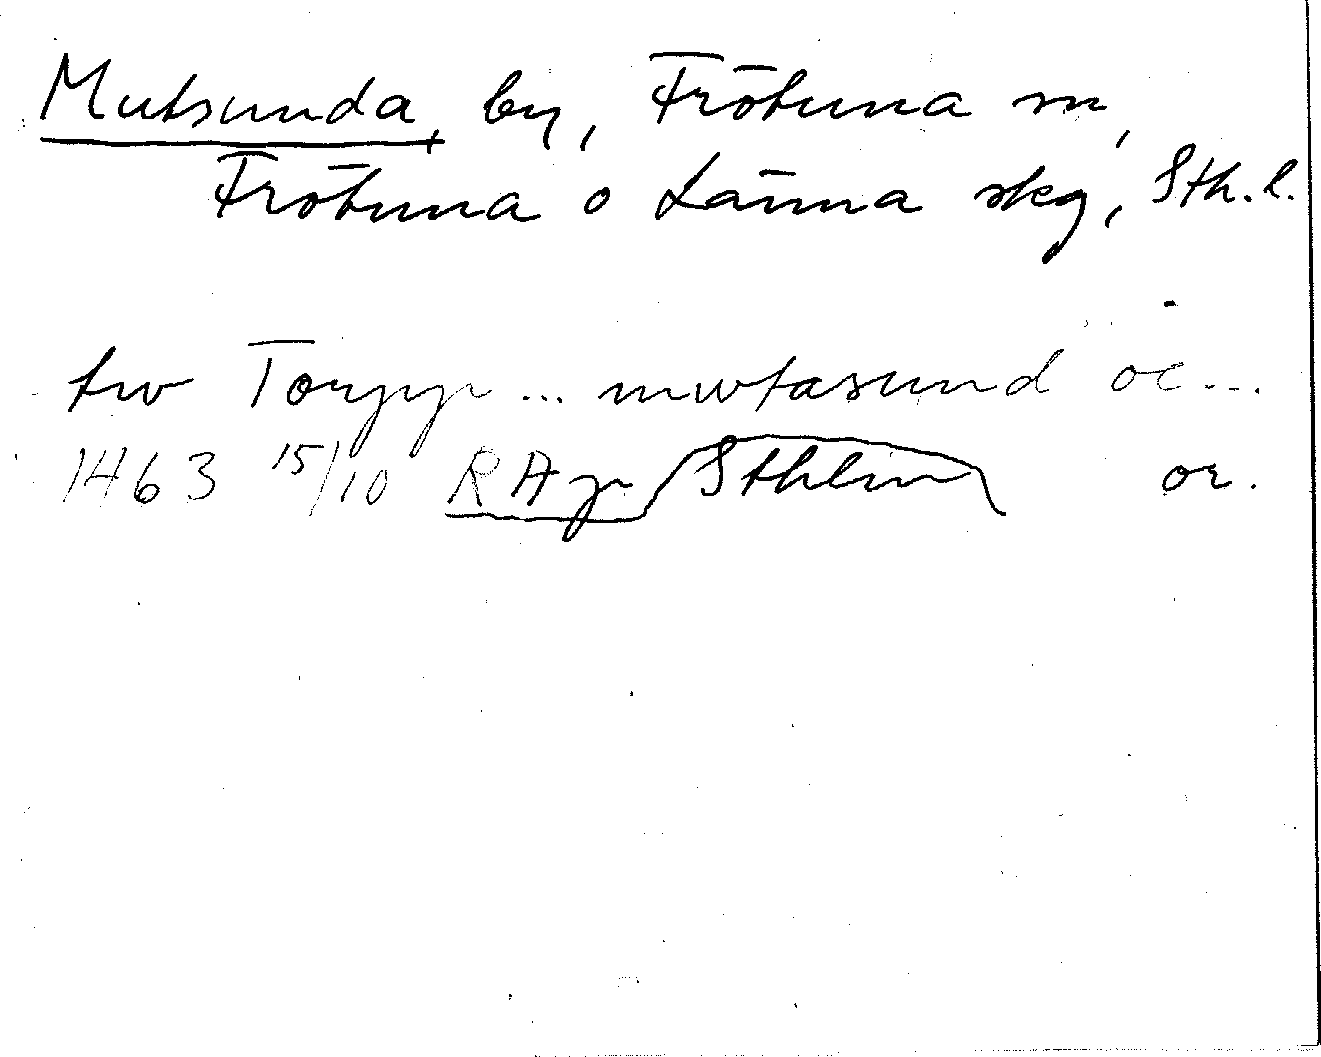 Mutsunda, by, Frötuna sn,
Frötuna o Länna skg, Sth.l.
tw Torpp ... mwtasund oc ...
1463 15/10 RAp Sthlm or.